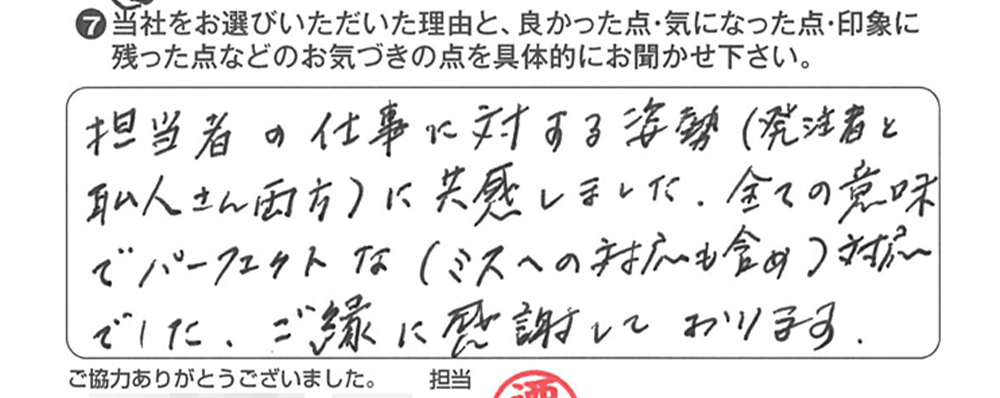 ❼当社をお選びいただいた理由と、良かった点・気になった点・印象に
残った点などのお気づきの点を具体的にお聞かせ下さい。
担当者の仕事に対する姿勢(発注者と
職人さん両方)に共感しました.全ての意味
でパーフェクトな(ミスへの対応も含め)対応
でした.ご縁に感謝しております.
ご協力ありがとうございました。 担当